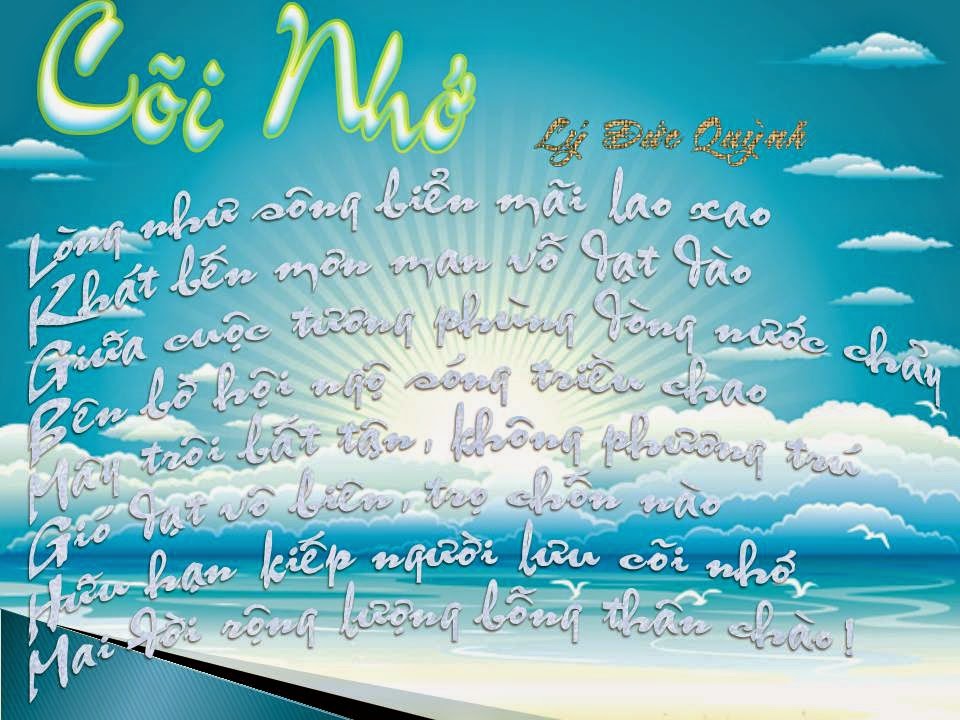 Cõi Nhớ
Lý Đức Quỳnh
Lòng như sông biển mãi lao xao
Khát bến mơn man vỗ dạt dào
Giữa cuộc tương phùng dòng nước chảy
Bên bờ hội ngộ sóng triều chao
Mây trôi bất tận, không phương trú
Gió dạt vô biên, trọ chốn nào
Hữu hạn kiếp người lưu cõi nhớ
Mai đời rộng lượng bỗng thân chào!